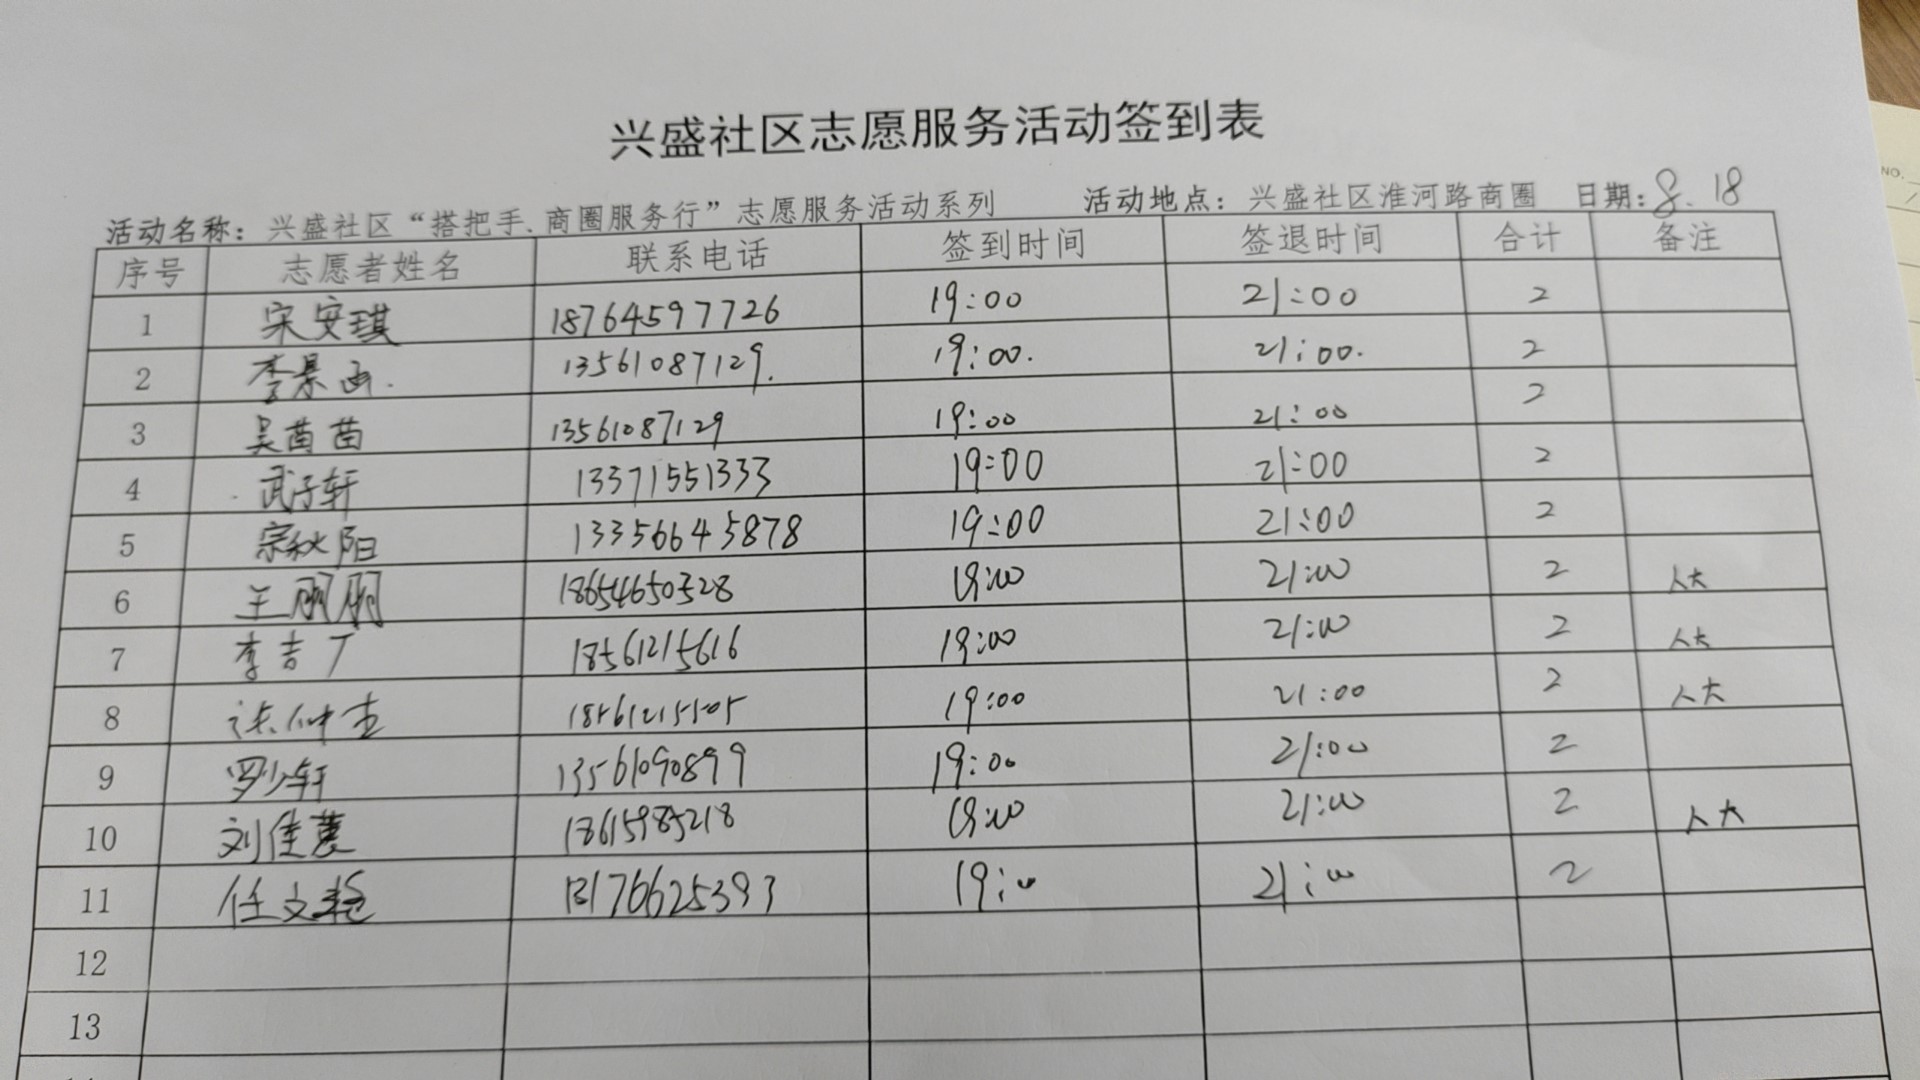 兴盛社区志愿服务活动签到表
活动名称：兴盛社区“搭把手、商圈服务行”志愿服务活动系列 活动地点：兴盛社区淮河路商圈 日期：8.18
序号 志愿者姓名 联系电话 签到时间 签退时间 合计 备注
1 宋安琪 18764597726 19:00 21:00 2
2 李景画. 13561087129. 19:00. 21:00. 2
3 吴苗苗 13561087129 19:00 21:00 2
4 武子轩 13371551333 19:00 21:00 2
5 宗秋阳 13356645878 19:00 21:00 2
6 王丽丽 18654650328 19:00 21:00 2 人大
7 李吉广 18561215616 19:00 21:00 2 人大
8 张仲杰 18561215505 19:00 21:00 2 人大
9 罗少轩 13561090899 19:00 21:00 2
10 刘佳 18615985218 19:00 21:00 2 人大
11 任文艳 13176625393 19:00 21:00 2
12
13
NO.